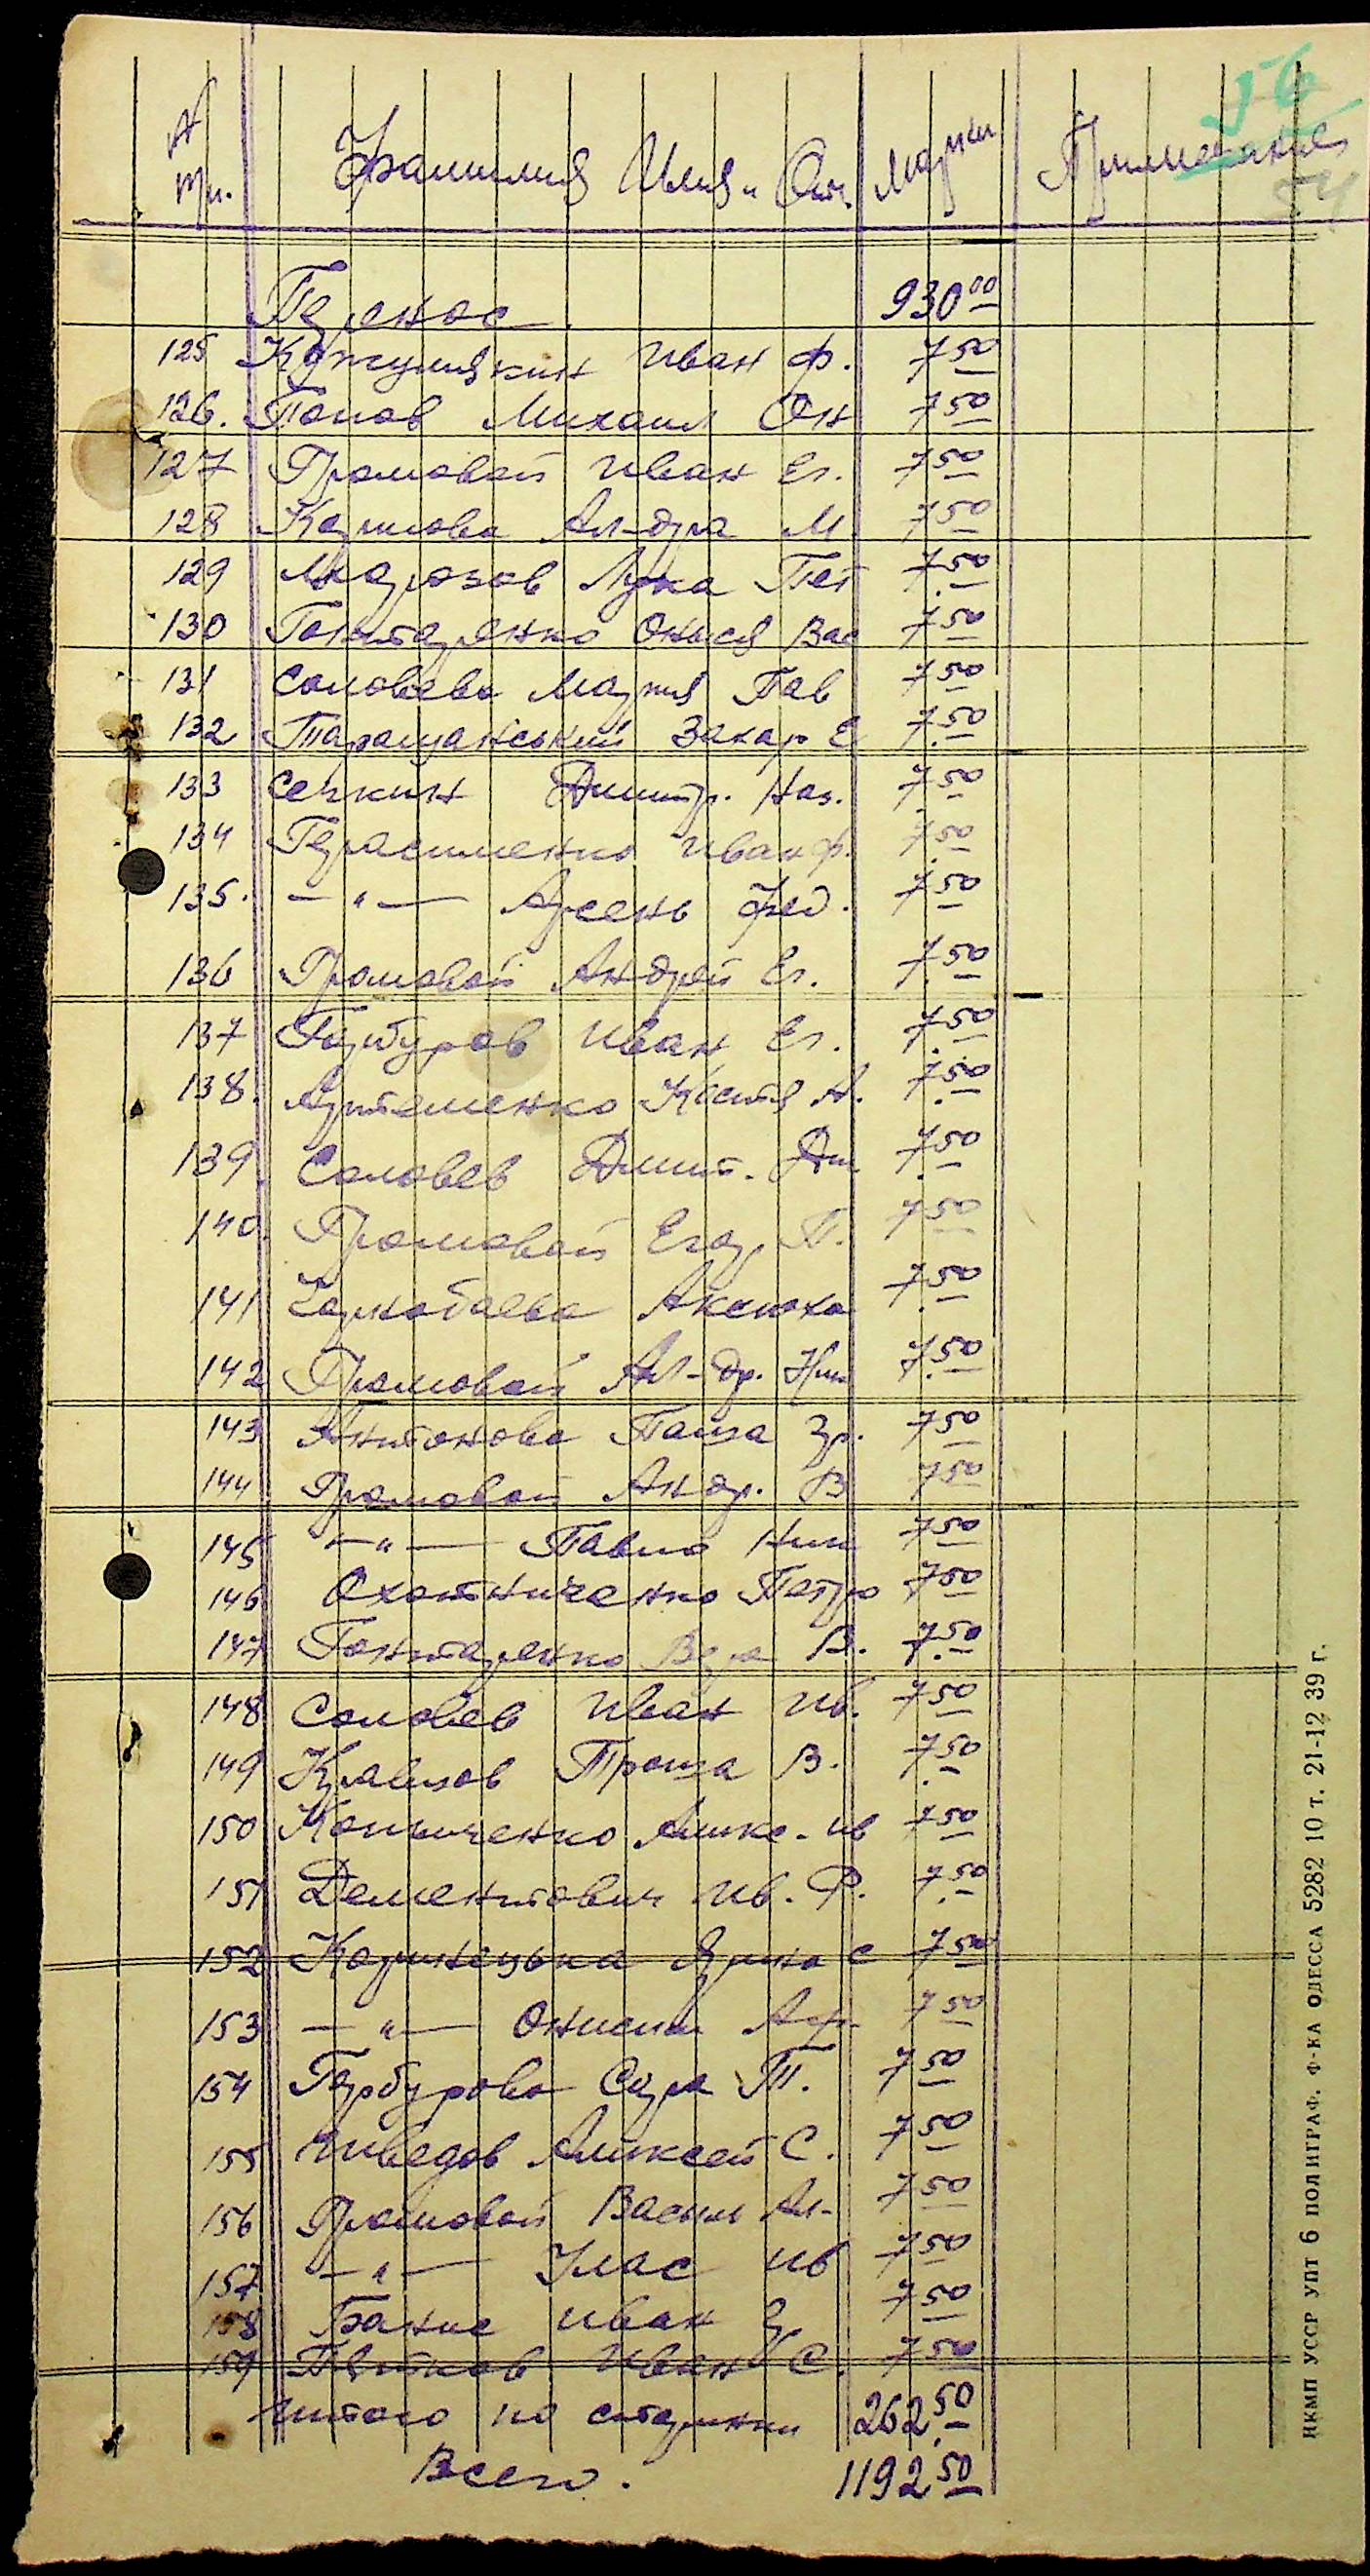 № пп. Фамилия Имя и Отч. Марки Примечание
56
54
Перенос 930 00
125 Кожушкин Иван Ф. 7 50
126. Попов Михаил 7 50
127 Громовой Иван Ег. 7 50
128 Карпова Ал-дра М. 7 50
129 Морозов Лука Пет 7 50
130 Гонтаренко Онися Вас 7 50
131 Соловева Мария Пав 7 50
132 Таращанський Захар Е 7 50
133 Сечкин Дмитр. Наз. 7 50
134 Герасименко Иван Ф. 7 50
135. —"— Арсень Фед. 7 50
136 Громовой Андрей Ег. 7 50
137 Гарбуров Иван Ег. 7 50
138. Артеменко Костя А. 7 50
139. Соловев Дмит. Дм 7 50
140. Громовой Егор П. 7 50
141 Чорнобаева 7 50
142 Громовой Ал-др. Ник 7 50
143 Антонова Паша Гр. 7 50
144 Громовой Андр. В 7 50
145 —"— Павло Ник 7 50
146 Охотниченко Петро 7 50
147 Гонтаренко Вера В. 7 50
148 Соловев Иван Ив. 7 50
149 Кравцов Троша В. 7 50
150 Копыченко Алекс. Ив 7 50
151 Дементович Ив. Р. 7 50
152 С 7 50
153 —"— Онисим 7 50
154 Гарбурова Сара Т. 7 50
155 Алексей С. 7 50
156 Громовой Васил Ал- 7 50
157 —"— Улас Ив 7 50
158 Иван 7 50
159 Иван С. 7 50
Итого по сторинки 262.50
Всего. 1192 50
НКМП УССР УПТ 6 ПОЛИГРАФ. Ф-КА ОДЕССА 5282 10 т. 21-12 39 г.